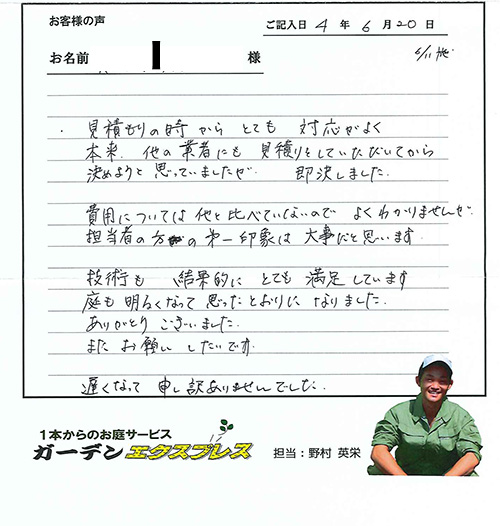 お客様の声
ご記入日 4 年 6 月 20 日
お名前 様
6/11
・見積もりの時から とても 対応がよく
本来、他の業者にも 見積りをしていただいてから
決めようと思っていましたが、 即決しました。
費用については他と比べていないので よくわかりませんが、
担当者の方の第一印象は 大事だと思います。
技術も 結果的に とても 満足しています
庭も 明るくなって 思ったとおりに なりました。
ありがとうございました。
また お願い したいです。
遅くなって 申し訳ありませんでした。
1本からのお庭サービス
ガーデンエクスプレス
担当:野村 英栄